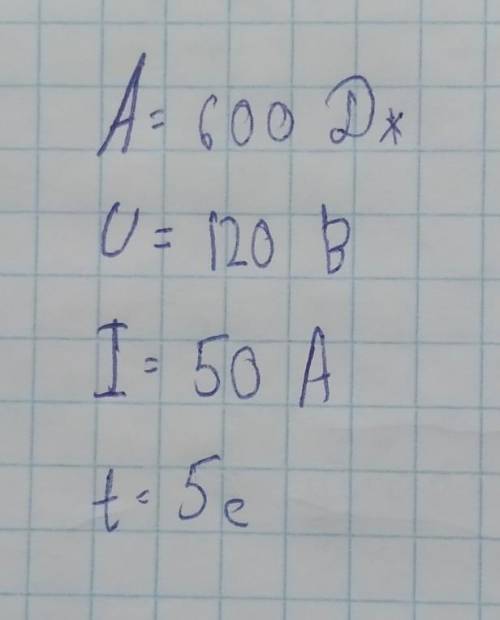 A = 600 Дж
U = 120 В
I = 50 А
t = 5с